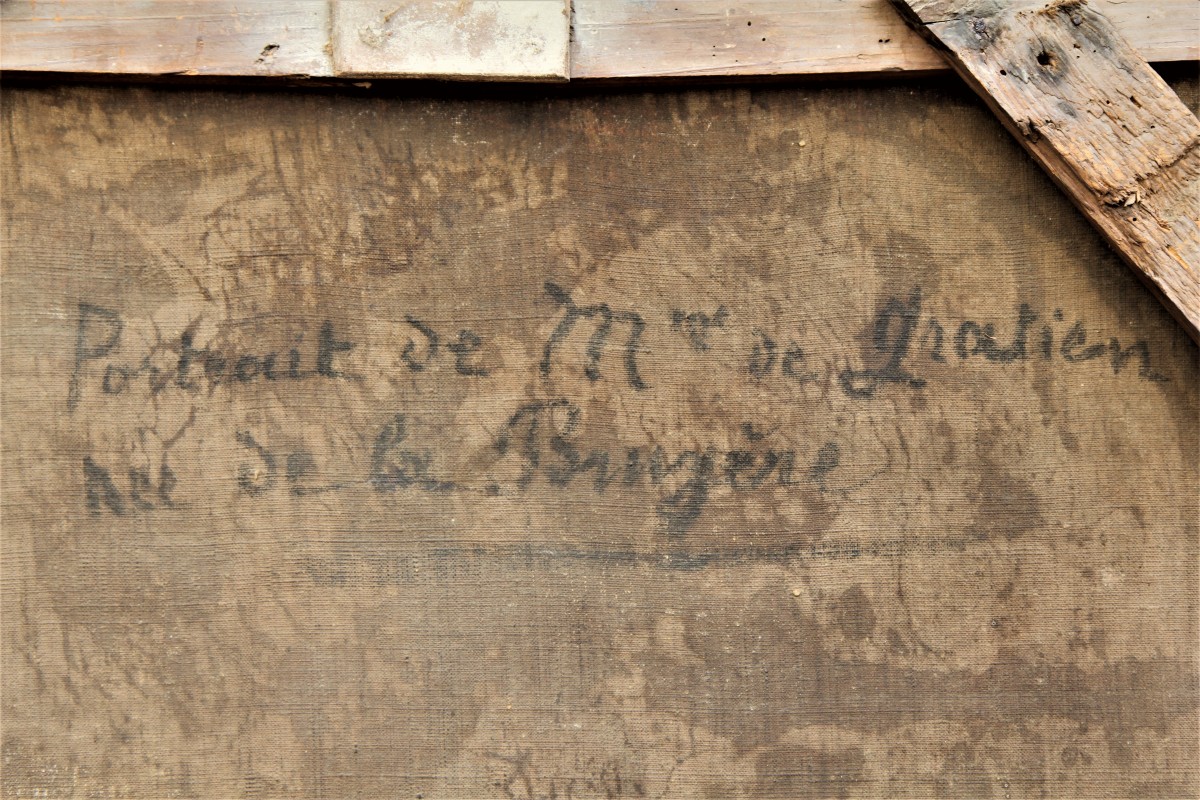 Portrait de Mme de Gratien
née de la Bruyère